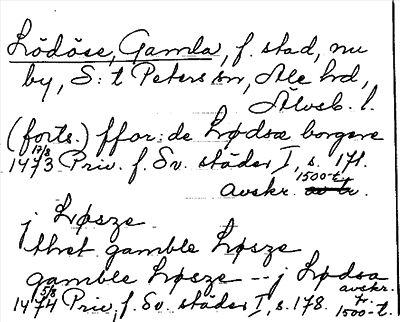 Lödöse, Gamla, f. stad, nu
by, S:t Peters sn, Ale hd,
Älvsb. l.
(forts.) ffor: de Lødsæ borgere
17/8
1473 Priv. f. Sv. städer I, s. 171.
avskr. 1500-t.
j Løsze
thet gamble Løsze
gamble Løsze -- j Lødsa
5/8
1474 Priv. f. Sv. städer I, s. 178. avskr. fr. 1500-t.